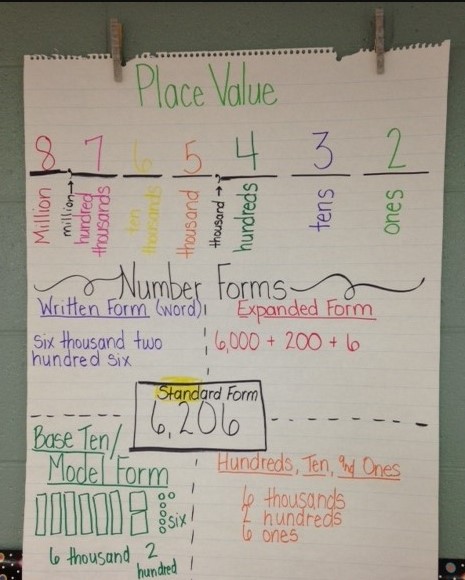 Place Value
8 7 6 5 4 3 2
Million
million→
hundred
thousands
ten
thousands
thousand
thousand →
hundreds
tens
ones
Number Forms
Written Form (word)
six thousand two
hundred six
Expanded Form
6,000 + 200 + 6
Standard Form
6,206
Base Ten/
Model Form
six
6 thousand 2
hundred
Hundreds, Ten, and Ones
6 thousands
2 hundreds
6 ones